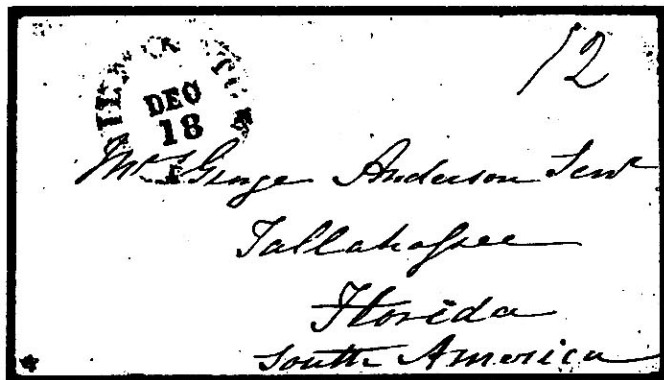 12
DEC
18
Mr George Anderson Senr
Tallahassee
Florida
South America